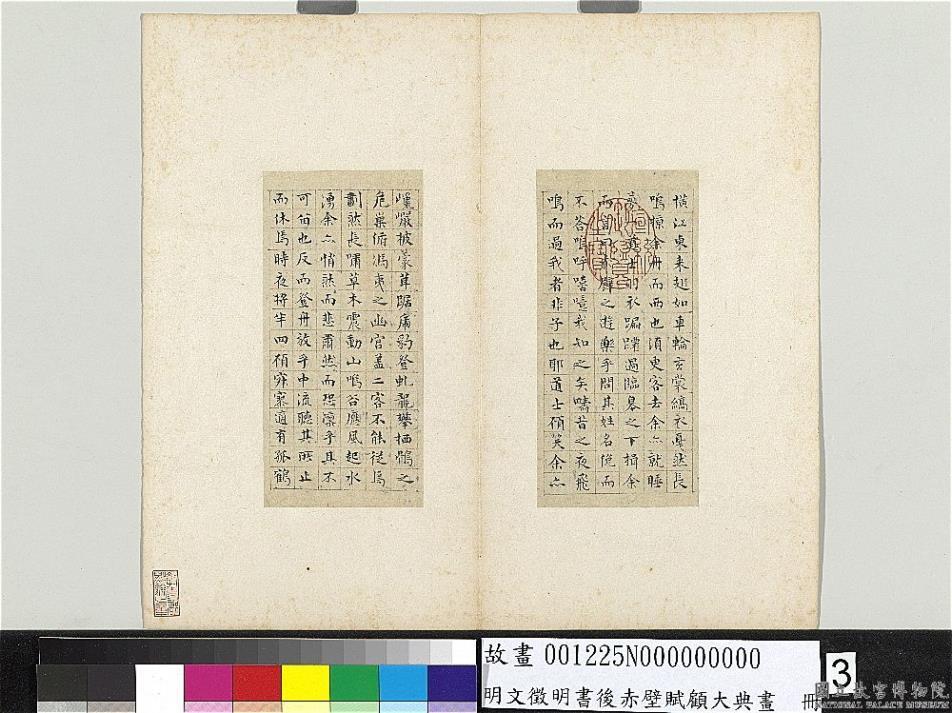 巉巖披蒙茸踞虎豹登虬龍攀栖鶻之
危巢俯馮夷之幽宮蓋二客不能從焉
劃然長嘯草木震動山鳴谷應風起水
湧余亦悄然而悲肅然而恐凜乎其不
可留也反而登舟放乎中流聽其所止
而休焉時夜將半四顧寂寥適有孤鶴
橫江東來翅如車輪玄裳縞衣戛然長
鳴掠余舟而西也須臾客去余亦就睡
夢一道士羽衣蹁躚過臨皋之下揖余
而言曰赤壁之遊樂乎問其姓名俛而
不答嗚呼噫嘻我知之矣疇昔之夜飛
鳴而過我者非子也耶道士顧笑余亦
故畫 001225N000000000
明文徵明書後赤壁賦顧大典畫 冊
3
國立故宮博物院
NATIONAL PALACE MUSEUM